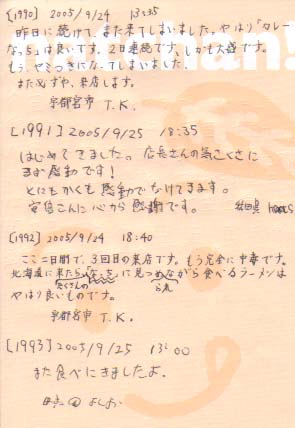 [1990] 2005/9/24 13:35
昨日に続けて、また来てしまいました。やはり「カレー
なっち」は良いです。2日連続です、しかも大盛です。
もう、ヤミつきになってしまいました。
また必ずや、来店します。
宇都宮市 T.K.
[1991] 2005/9/25 18:35
はじめてきました。店長さんの気さくさに
まず感動です!
とにもかくも感動でなけてきます。
安倍さんに心から感謝です。
[1992] 2005/9/24 18:40
ここ二日間で、3回目の来店です。もう完全に中毒です。
北海道に来たら、なっちに見つめながら食べるラーメンは
たくさんの
られ
やはり良いものです。
宇都宮市 T.K.
[1993] 2005/9/25 13:00
また食べにきましたよ。